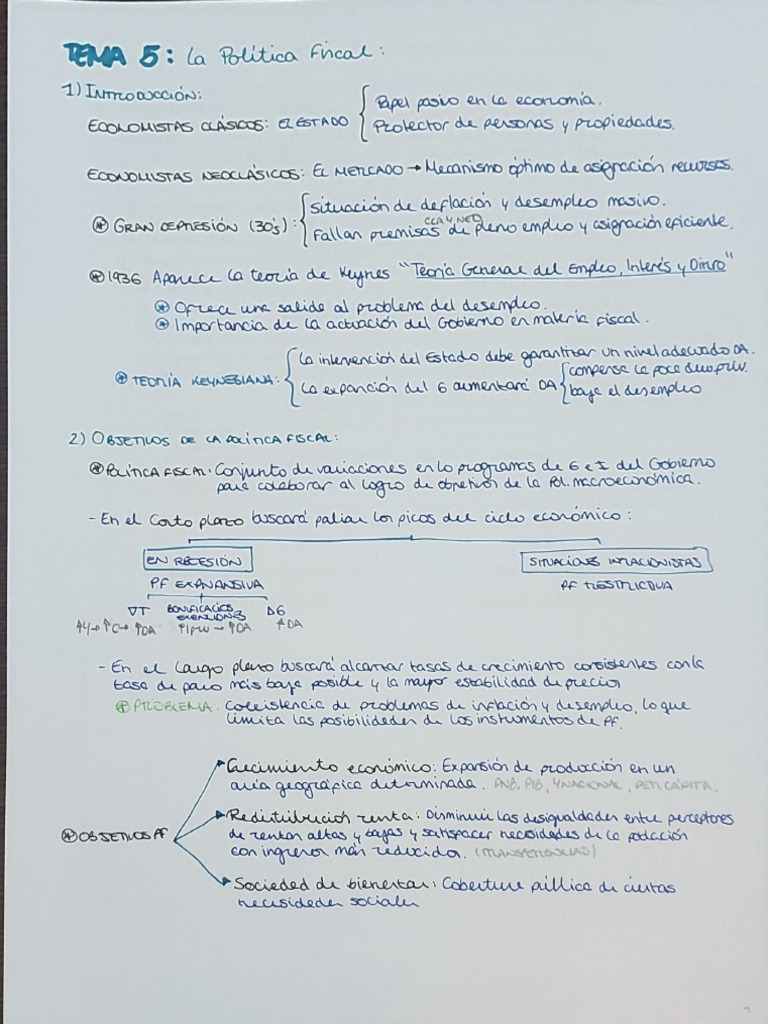 TEMA 5: La Política Fiscal:
1) INTRODUCCIÓN:
ECONOMISTAS CLÁSICOS: EL ESTADO
Papel pasivo en la economía.
Protector de personas y propiedades.
ECONOMISTAS NEOCLÁSICOS: EL MERCADO → Mecanismo óptimo de asignación recursos.
GRAN DEPRESIÓN (30's):
Situación de deflación y desempleo masivo.
CLA Y NEO
Fallan premisas de pleno empleo y asignación eficiente.
1936 Aparece la teoría de Keynes "Teoría General del Empleo, Interés y Dinero"
Ofrece una salida al problema del desempleo.
Importancia de la actuación del Gobierno en materia fiscal.
TEORÍA KEYNESIANA:
La intervención del Estado debe garantizar un nivel adecuado DA.
La expansión del G aumentará DA
compense la poca dem. priv.
baje el desempleo
2) OBJETIVOS DE LA POLÍTICA FISCAL:
POLÍTICA FISCAL: Conjunto de variaciones en lo programas de G e I del Gobierno
para colaborar al logro de objetivos de la Pol. macroeconómica.
- En el Corto plazo buscará paliar los picos del ciclo económico:
EN RECESIÓN
SITUACIONES INFLACIONISTAS
PF EXPANSIVA
PF RESTRICTIVA
▽T BONIFICACIOS EXENCIONES ΔG
↑Y→↑C→↑DA ↑Ipriv → ↑DA ↑DA
- En el Largo plazo buscará alcanzar tasas de crecimiento consistentes con la
tasa de paro más baja posible y la mayor estabilidad de precios
PROBLEMA: Coexistencia de problemas de inflación y desempleo, lo que
limita las posibilidades de los instrumentos de PF.
OBJETIVOS PF
Crecimiento económico: Expansión de producción en un
área geográfica determinada. PNB, PIB, Y NACIONAL, RENTA CÁPITA.
Redistribución renta: Disminuir las desigualdades entre perceptores
de rentas altas y bajas y satisfacer necesidades de la población
con ingresos más reducidos. (TRANSFERENCIAS)
Sociedad de bienestar: Cobertura pública de ciertas
necesidades sociales
1